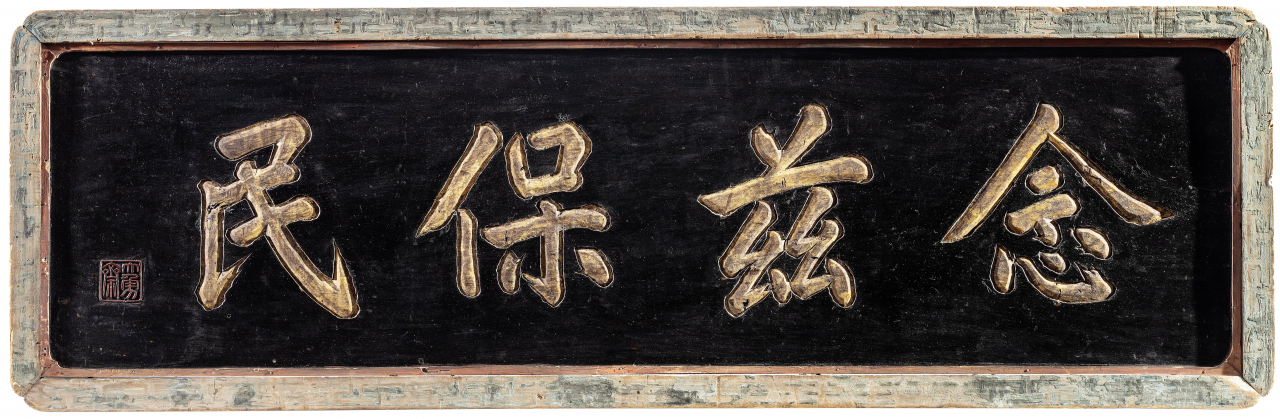 念茲保民